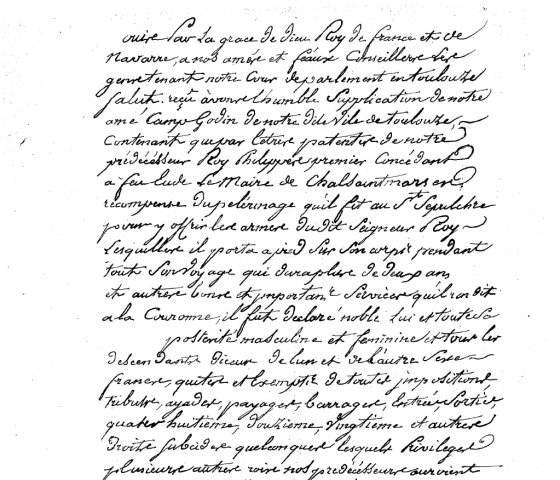 ouire Par La grace de dieu Roy de france et de
Navarre, a nos amés et feaux Conseillers Les
gens tenant notre Cour de parlement en toulouze
Salut. reçu avons l'humble Supplication de notre
amé Camp Godin de notre dite Ville de toulouze,
Contenant que par lettres patentes de notre
prédécésseur Roy Philippes premier Concédant
a feu Eude Le Maire de Chalsaintmars en
recompense du pelerinage qu'il fit au St Sepulchre
pour y offrir les armes dudit Seigneur Roy
Lesquelles il porta a pied Sur Son corps pendant
tout Son voyage qui dura plus de deux ans
et autres bons et important Services qu'il rendit
a la Couronne, il fut declaré noble Lui et toute Sa
posterité masculine et feminine et tous les
descendants d'iceux de l'un et de l'autre Sexe
francs, quites et Exempts de toutes impositions
tributs, aydes, payages, barrages, Entrée, Sortie,
quatre huitième, douzieme, vingtième et autres
Droits Subcides quelconques lesquels Privileges
plusieurs autres rois nos prédécésseurs auroient